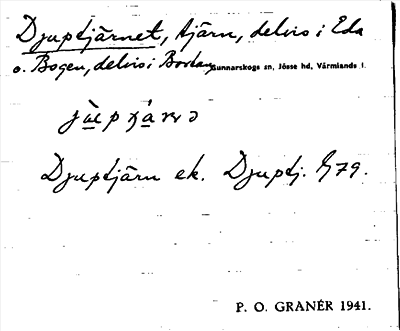 Djuptjärnet, tjärn, delvis i Eda
o. Bogen, delvis i Gunnarskogs sn, Jösse hd, Värmlands l.
Djuptjärn ek. Djuptj. 79.
P. O. GRANÉR 1941.